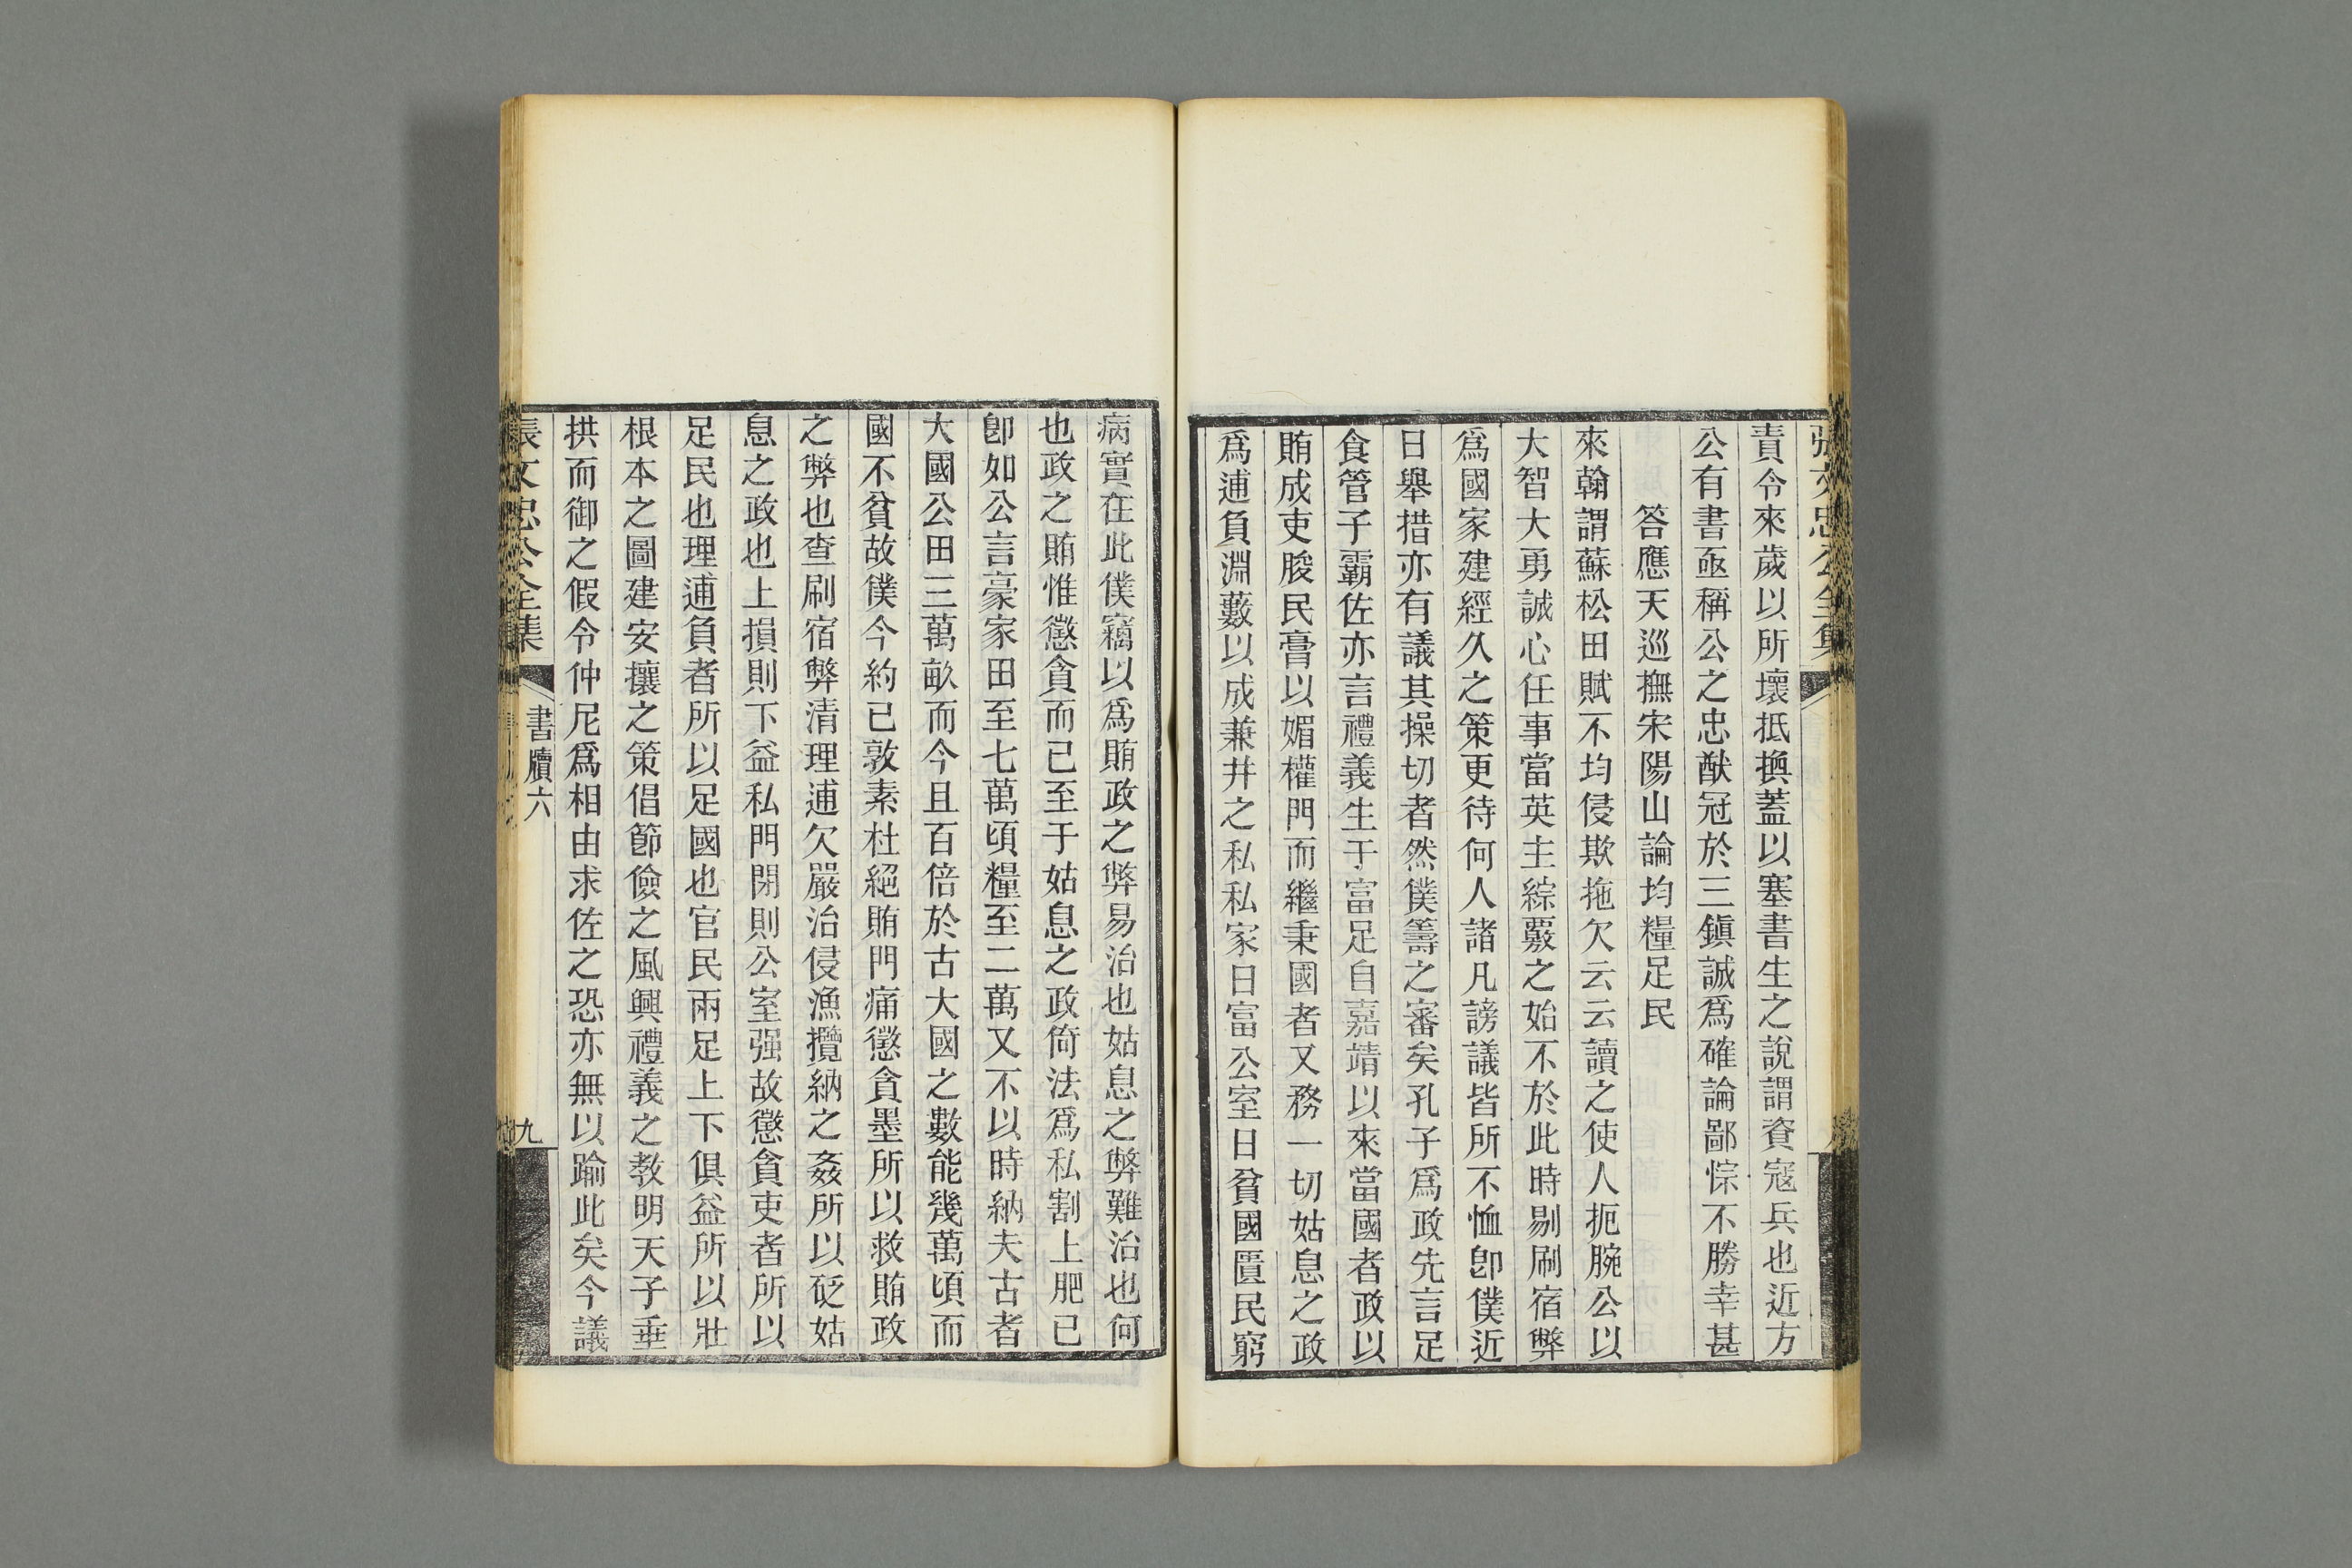 張文忠公全集
責令來歲以所壞抵換蓋以塞書生之說謂資寇兵也近方
公有書亟稱公之忠猷冠於三鎮誠爲確論鄙悰不勝幸甚
答應天巡撫宋陽山論均糧足民
來翰謂蘇松田賦不均侵欺拖欠云云讀之使人扼腕公以
大智大勇誠心任事當英主綜覈之始不於此時剔刷宿弊
爲國家建經久之策更待何人諸凡謗議皆所不恤卽僕近
日舉措亦有議其操切者然僕籌之審矣孔子爲政先言足
食管子霸佐亦言禮義生于富足自嘉靖以來當國者政以
賄成吏朘民膏以媚權門而繼秉國者又務一切姑息之政
爲逋負淵藪以成兼并之私私家日富公室日貧國匱民窮
病實在此僕竊以爲賄政之弊易治也姑息之弊難治也何
也政之賄惟懲貪而已至于姑息之政倚法爲私割上肥已
卽如公言豪家田至七萬頃糧至二萬又不以時納夫古者
大國公田三萬畝而今且百倍於古大國之數能幾萬頃而
國不貧故僕今約已敦素杜絕賄門痛懲貪墨所以救賄政
之弊也查刷宿弊清理逋欠嚴治侵漁攬納之姦所以砭姑
息之政也上損則下益私門閉則公室强故懲貪吏者所以
足民也理逋負者所以足國也官民兩足上下俱益所以壯
根本之圖建安攘之策倡節儉之風興禮義之教明天子垂
拱而御之假令仲尼爲相由求佐之恐亦無以踰此矣今議
張文忠公全集
書牘六
九